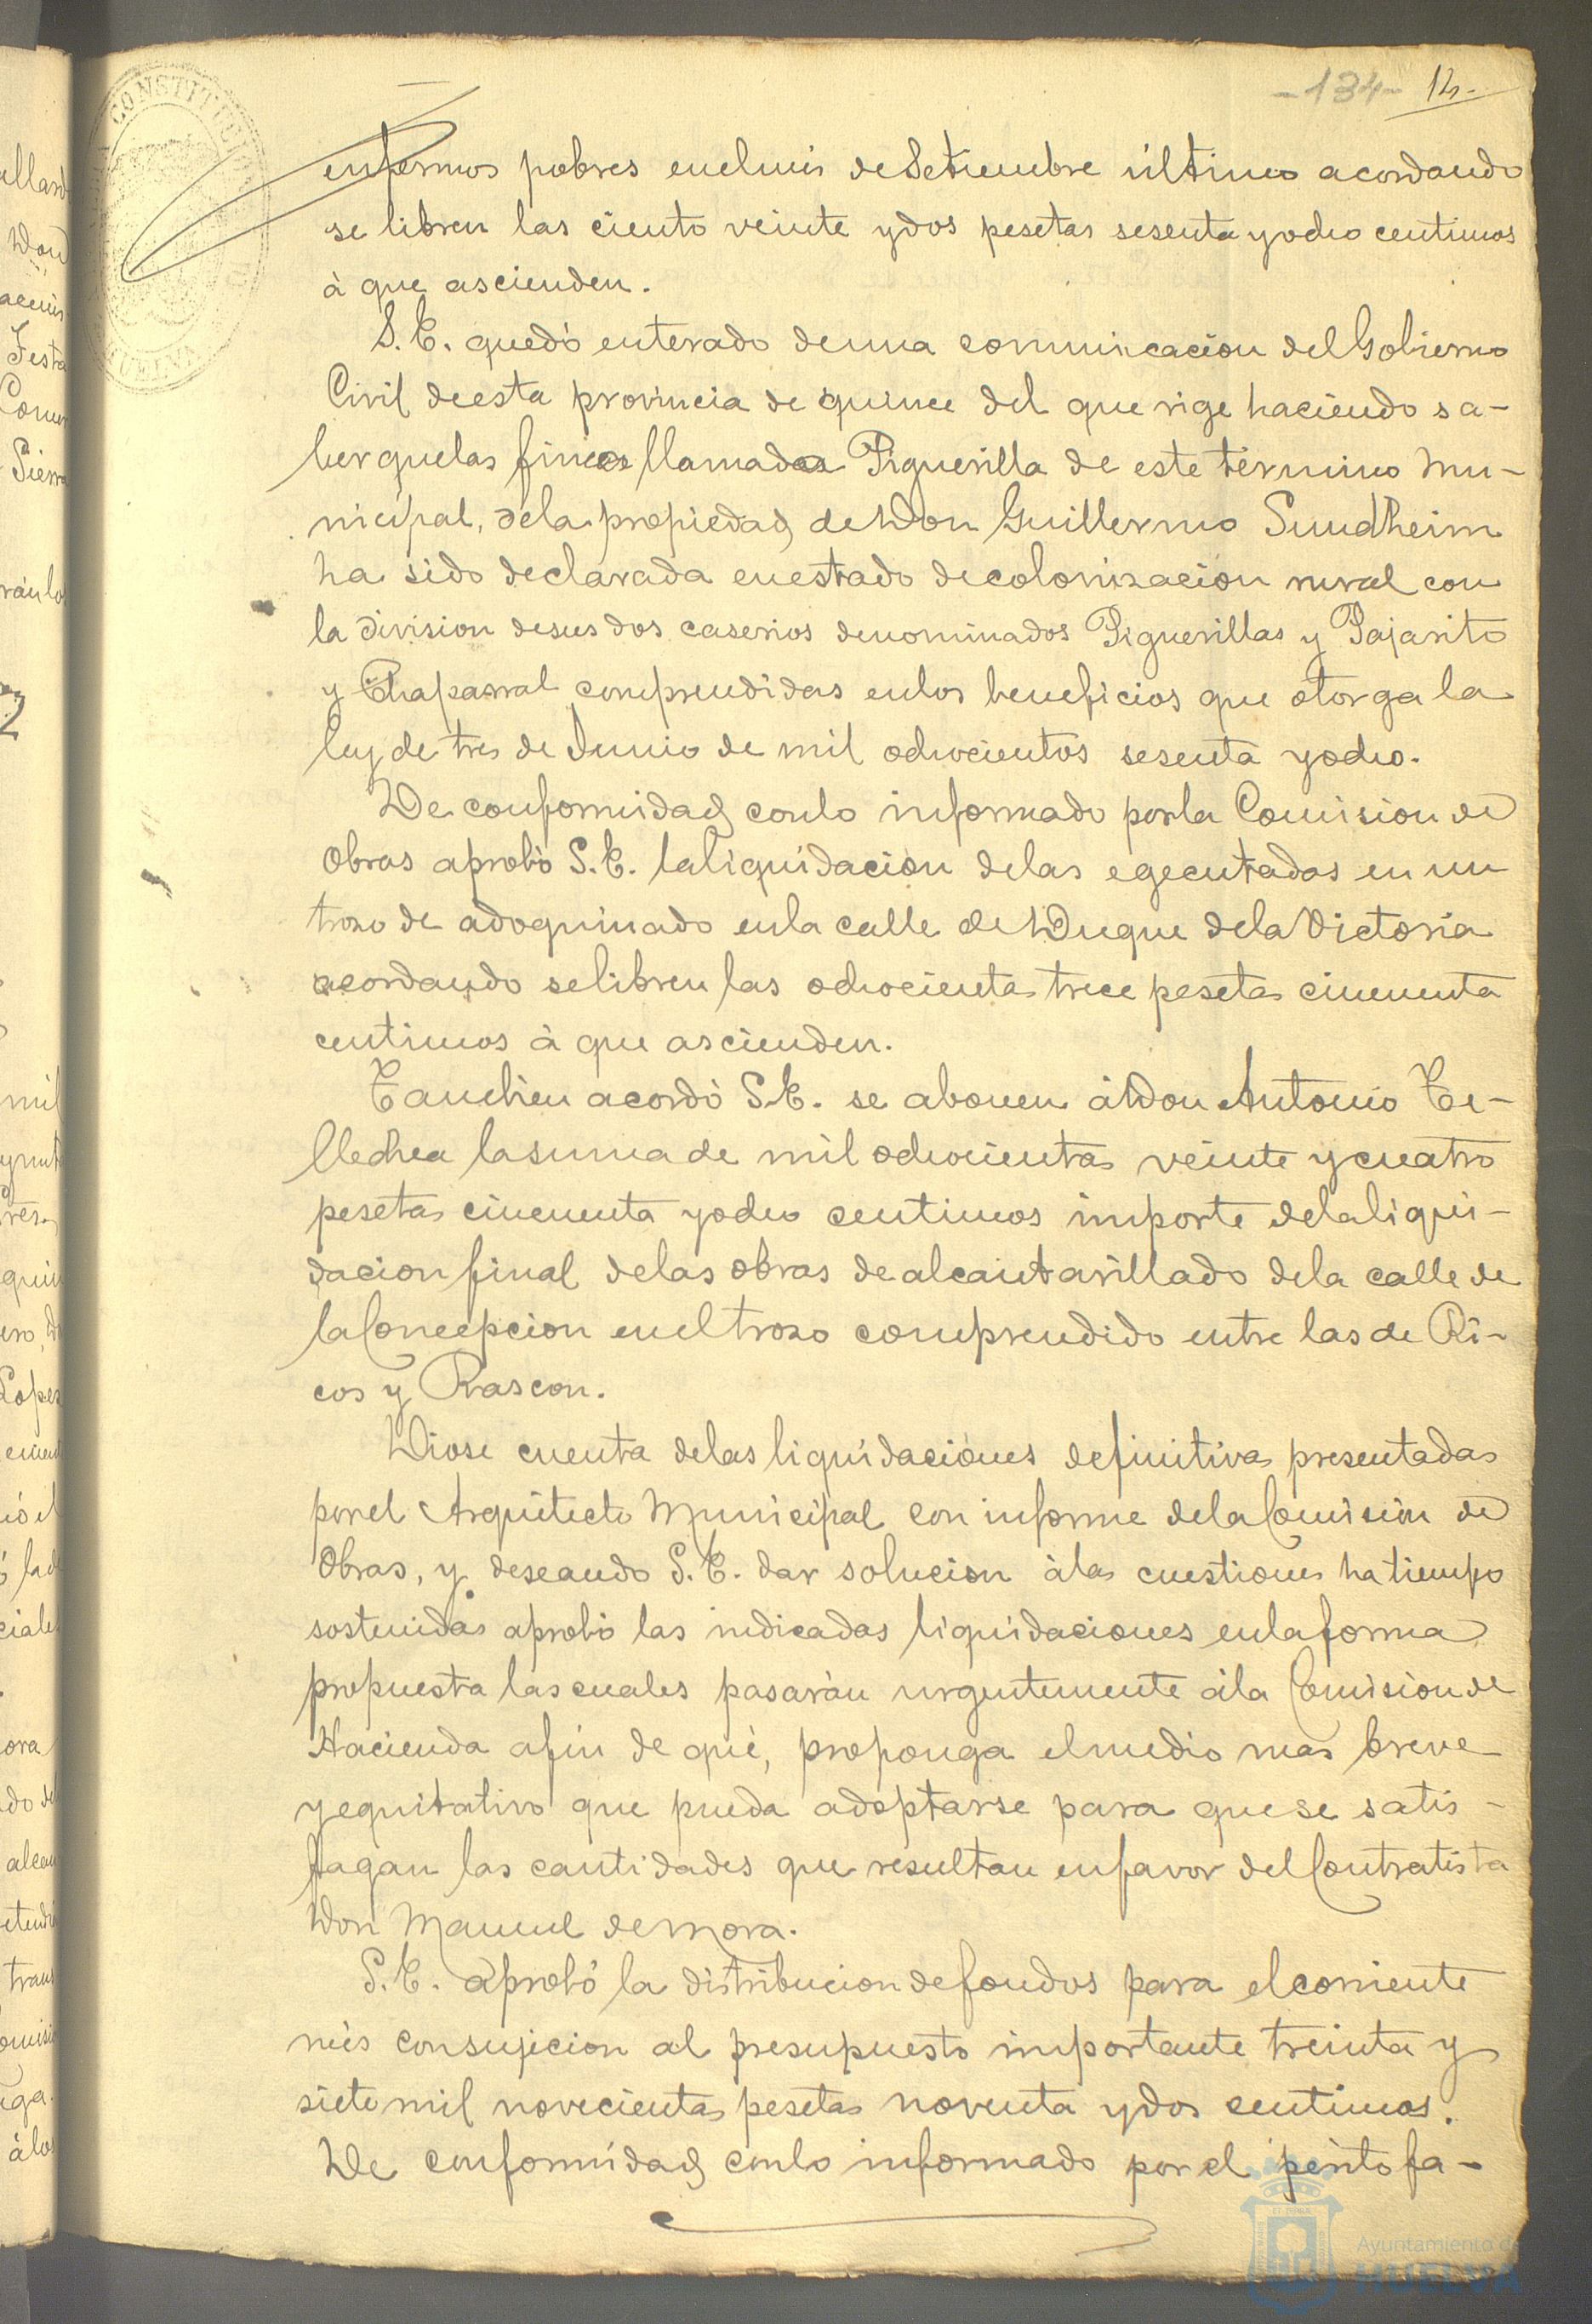 -134- 12.
CONSTITUCION
HUELVA
enfermos pobres en el mes de Setiembre último acordando
se libren las ciento veinte y dos pesetas sesenta y ocho centimos
à que ascienden.
S. E. quedó enterado de una comunicacion del Gobierno
Civil de esta provincia de quince del que rige haciendo sa-
ber que las fincas llamadas Piguerilla de este término mu-
nicipal, de la propiedad de Don Guillermo Sundheim
ha sido declarada en estado de colonizacion rural con
la division de sus dos caserios denominados Piguerillas y Pajarito
y Chaparral comprendidas en los beneficios que otorga la
ley de tres de Junio de mil ochocientos sesenta y ocho.
De conformidad con lo informado por la Comision de
Obras aprobó S. E. la liquidacion de las egecutadas en un
trozo de adoquinado en la calle de Duque de la Victoria
acordando se libren las ochocientas trece pesetas cincuenta
centimos à que ascienden.
Tambien acordó S. E. se abonen à Don Antonio Te-
llechea la suma de mil ochocientas veinte y cuatro
pesetas cincuenta y ocho centimos importe de la liqui-
dacion final de las obras de alcantarillado de la calle de
la Concepcion en el trozo comprendido entre las de Ri-
cos y Rascon.
Diose cuenta de las liquidaciones definitivas presentadas
por el Arquitecto Municipal con informe de la Comision de
Obras, y deseando S. E. dar solucion à las cuestiones ha tiempo
sostenidas aprobó las indicadas liquidaciones en la forma
propuesta las cuales pasarán urgentemente à la Comision de
Hacienda afin de que, proponga el medio mas breve
y equitativo que pueda adoptarse para que se satis-
fagan las cantidades que resultan en favor del Contratista
Don Manuel de Mora.
S. E. aprobó la distribucion de fondos para el corriente
mes con sujecion al presupuesto importante treinta y
siete mil novecientas pesetas noventa y dos centimos.
De conformidad con lo informado por el perito fa-
Ayuntamiento de
HUELVA